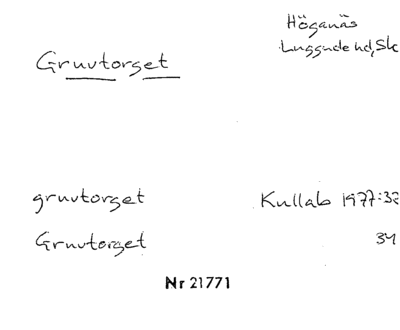 Gruvtorget
Höganäs
Luggude hd, Sk
gruvtorget Kullab 1977:32
Gruvtorget 34
Nr 21771